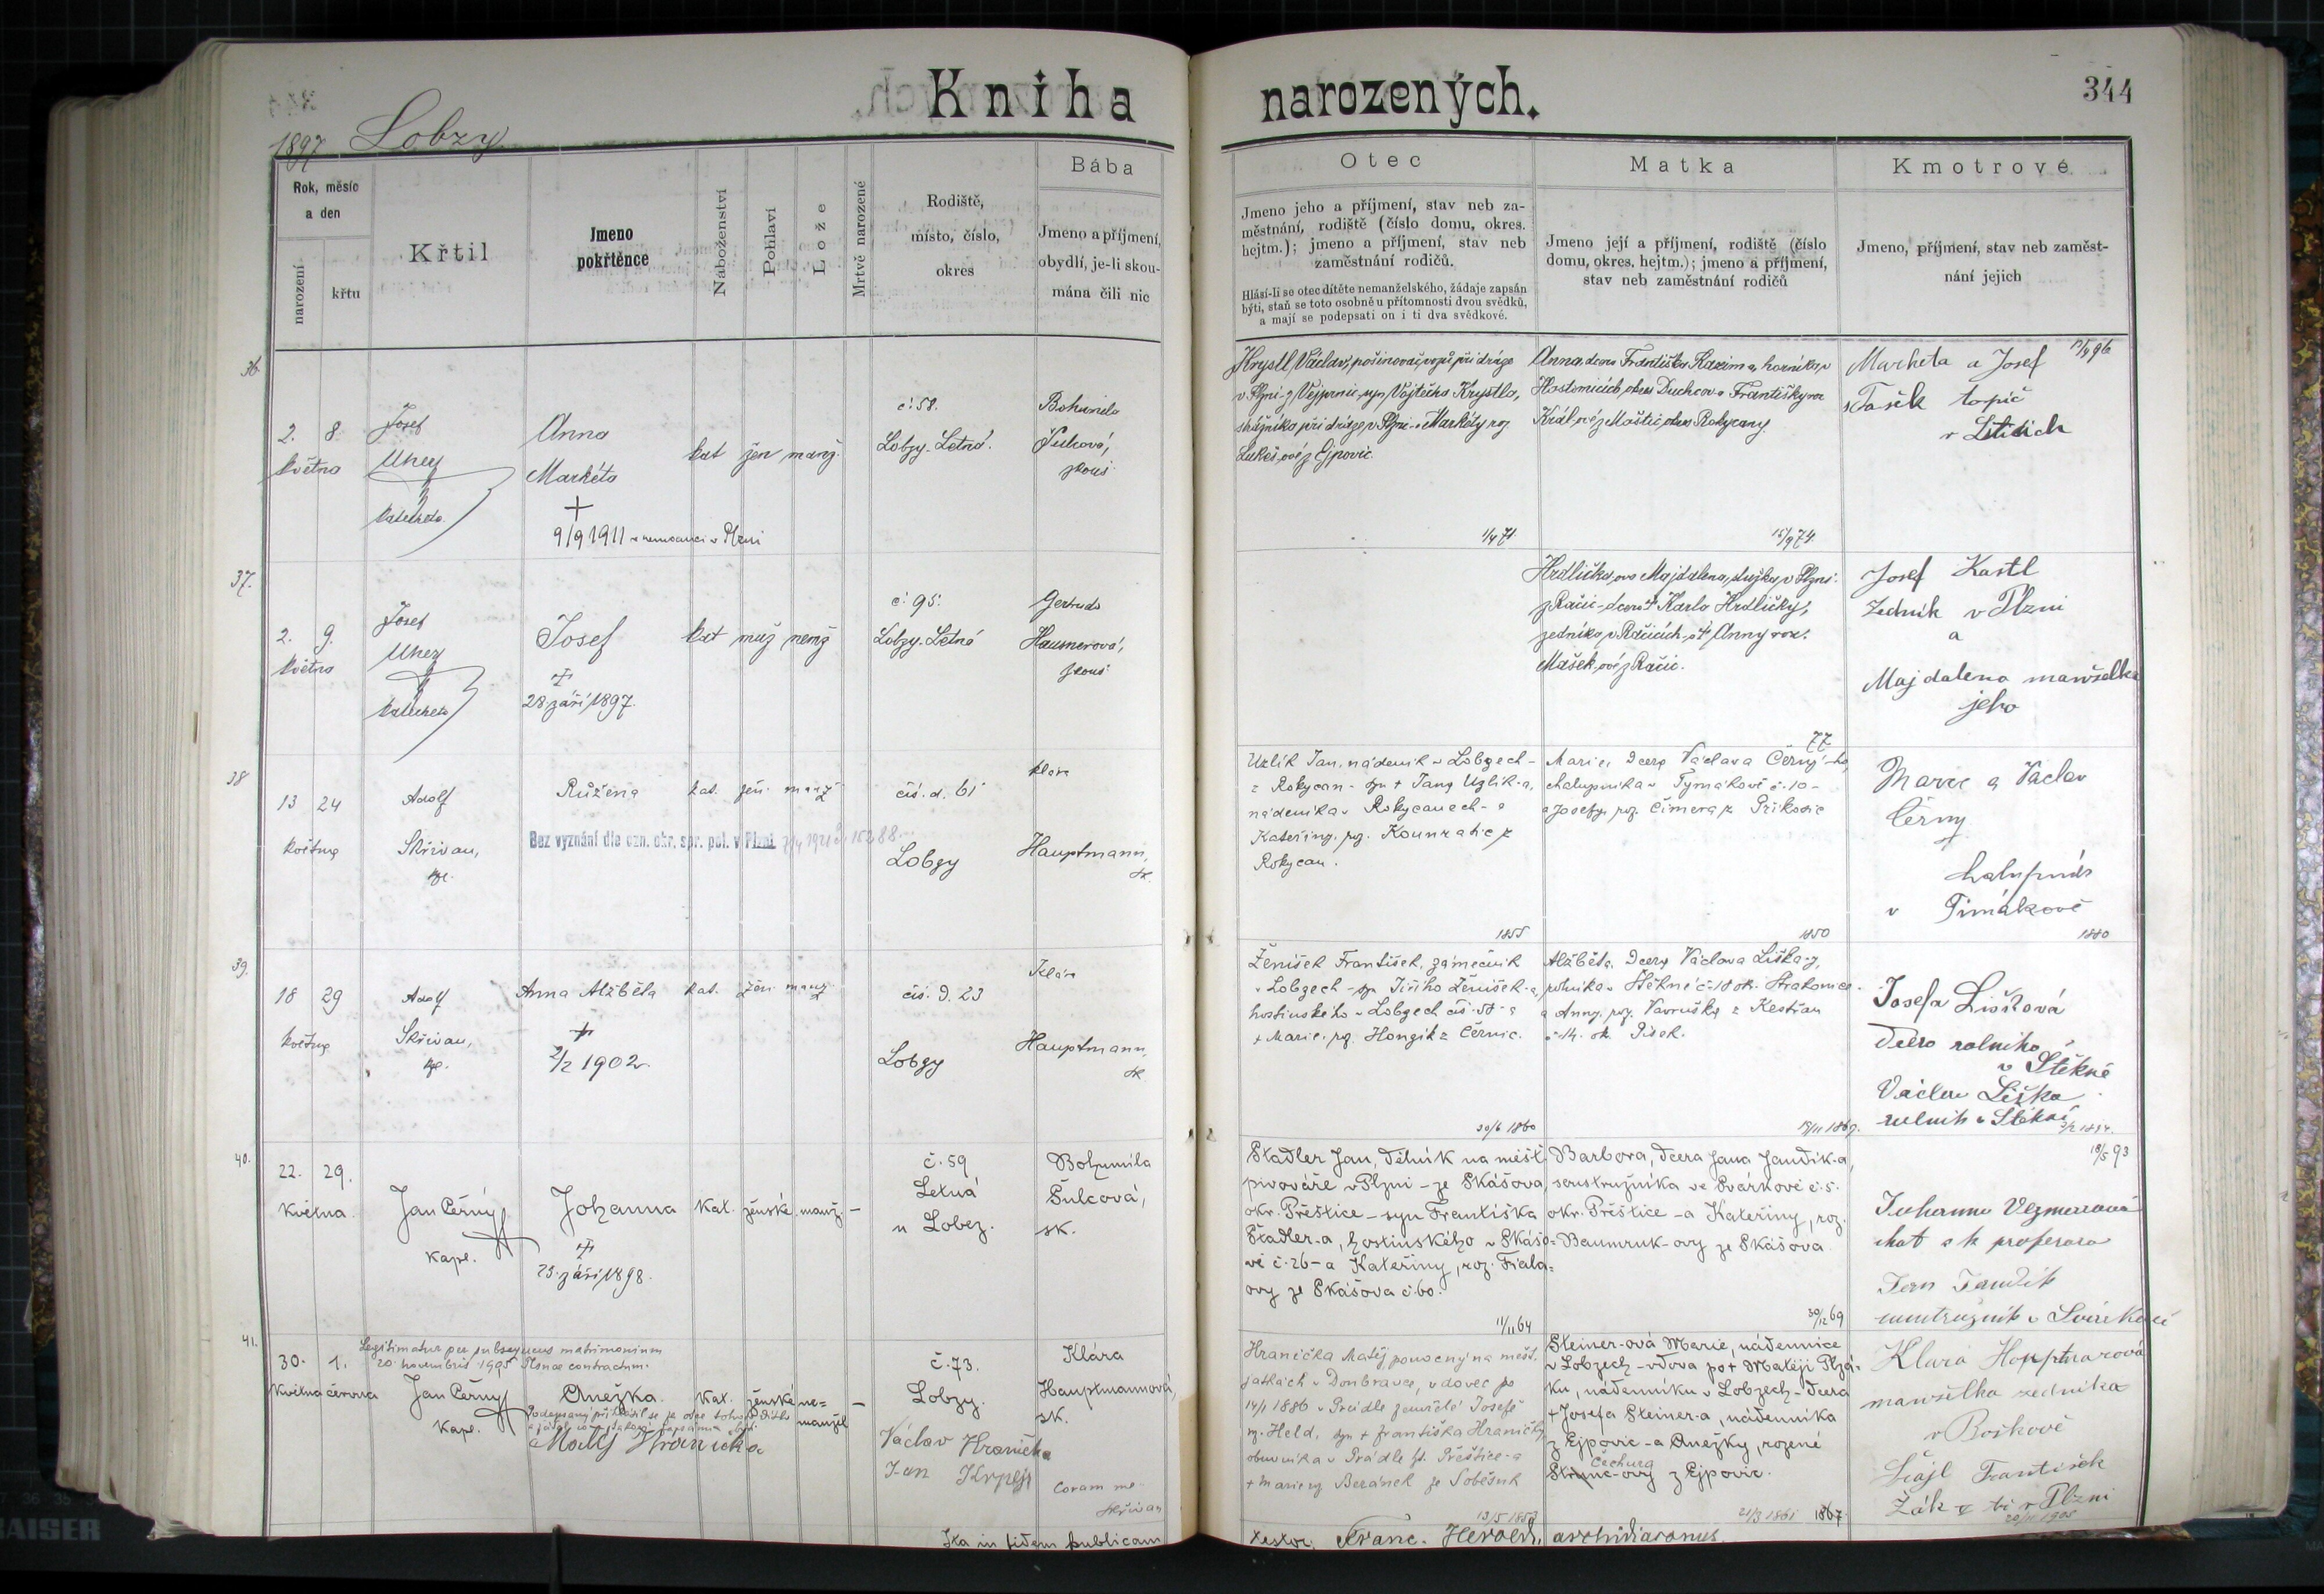 Kniha narozených.
344
1897 Lobzy
Rok, měsíc
a den
narození
křtu
Křtil
Jmeno
pokřtěnce
Náboženství
Pohlaví
Lože
Mrtvě narozené
Rodiště,
místo, číslo,
okres
Bába
Jmeno a příjmení,
obydlí, je-li skou-
mána čili nic
Otec
Jmeno jeho a příjmení, stav neb za-
městnání, rodiště (číslo domu, okres.
hejtm.); jmeno a příjmení, stav neb
zaměstnání rodičů.
Hlásí-li se otec dítěte nemanželského, žádaje zapsán
býti, staň se toto osobně u přítomnosti dvou svědků,
a mají se podepsati on i ti dva svědkové.
Matka
Jmeno její a příjmení, rodiště (číslo
domu, okres. hejtm.); jmeno a příjmení,
stav neb zaměstnání rodičů
Kmotrové
Jmeno, příjmení, stav neb zaměst-
nání jejich
36.
2. 8.
května
Josef
Uhey
Anna
Markéta
+
9/9 1911 v nemocnici v Plzni
kat žen manž.
č. 58.
Lobzy-Letná.
Bohumila
Šulcová,
zkouš
Václav, pošinovač vozů při dráze
v Plzni - z Vejprnic, syn Vojtěcha Krystla,
při dráze v Plzni - a Markéty roz
Lukeš-ové z Ejpovic.
1/4 71.
Anna, dcera Františka Kazima, horníka v
Hostomicích, okres Duchcov a Františky roz
Král-ové z Maštic, okres Rokycany
15/9 74
Markéta a Josef
Tašek topič
v Liticích
37.
2. 9.
května
Josef
Uhey
Josef
28. září 1897.
kat muž nemž
č. 95.
Lobzy-Letná
Gertruda
Hausnerová,
zkouš
Hrdličkova Majdalena, služka v Plzni
z Račic - dcera + Karla Hrdličky,
zedníka v Račicích a + Anny roz.
Mašek-ové z Račic.
77
Josef Kastl
Zedník v Plzni
a
Majdalena manželka
jeho
38
13 24
května
Adolf
Skřivan,
kpl.
Růžena
Bez vyznání dle ozn. okr. spr. pol. v Plzni
kat. žen. manž
čís. d. 61
Lobzy
Klára
Hauptmann,
sk.
Uzlík Jan, nádeník v Lobzech -
z Rokycan - syn + Jana Uzlík-a,
nádeníka v Rokycanech - a
Kateřiny, roz. Kounratic z
Rokycan.
1855
Marie, dcera Václava Černý-ho,
chalupníka v Tymákově č. 10 -
a Josefy, roz. Čimera z Příkosic
1850
Marie a Václav
Černý
v Timákově
1880
39.
18 29
května
Adolf
Skřivan,
kpl.
Anna Alžběta
+
2/2 1902
kat. žen. manž.
čís. d. 23
Lobzy
Klára
Hauptmann,
sk
Ženíšek František, zámečník
v Lobzech - syn Jiřího Ženíšek-a,
hostinského v Lobzech čís. 58 - a
+ Marie, roz. Hongik z Černic.
30/6 1860
Alžběta, dcera Václava Liška-y,
rolníka v Štěkně č. 18 ok. Strakonice -
a Anny, roz. Vavruška z Kestřan
č. 14. ok. Písek.
18/11 1869.
Josefa Lišková
dcera rolníka
v Štěkně
Václav Liška
rolník v Štěkni
40.
22. 29.
května
Jan Černý
kapl.
Johanna
23. září 1898.
kat. ženské manž. -
č. 59
Letná
u Lobez.
Bohumila
Šulcová,
sk.
Stadler Jan, dělník na měšť.
pivováře v Plzni - ze Skášova,
okr. Přeštice - syn Františka
Stadler-a, hostinského v Skášo=
vě č. 26 - a Kateřiny, roz. Fiala=
ovy ze Skášova č. 60.
11/11 64
Barbora, dcera Jana Jandík-a,
soustružníka ve Svárkově č. 5.
okr. Přeštice - a Kateřiny, roz.
Baumruk-ovy ze Skášova.
30/12 69
18/5 93
choť c k profesora
Jan Jandík
41.
Legitimatur per subsequens matrimonium
20. novembris 1905 Plsnae contractum.
30. 1.
května června
Jan Černý
kapl.
Anežka.
Podepsaný přihlásil se za otce tohoto dítka
Matěj Hranička
kat. ženské ne=
manžel -
č. 73.
Lobzy.
Václav Hranička
Jan Krpejš
Klára
Hauptmannová,
sk.
Coram me
Skřivan
Hranička Matěj pomocný na měšť.
jatkách v Doubravce, vdovec po
14/1 1886 v Prádle zemřelé Josefě
roz. Held, syn + Františka Hraničky,
obuvníka v Prádle hl. Přeštice - a
+ Marie roz Beránek ze Soběsuk
Steiner-ová Marie, nádennice
v Lobzech - vdova po + Matěji Plzá-
ku, nádenníku v Lobzech - dcera
+ Josefa Steiner-a, nádenníka
z Ejpovic - a Anežky, rozené
Čechura
z Ejpovic.
21/3 1861 1867
Klara Hoptmarová
manželka zedníka
v Boškově
František
v Plzni
20/11 1905
Ita in fidem publicam
testor Franc. Herold, archidiaconus.